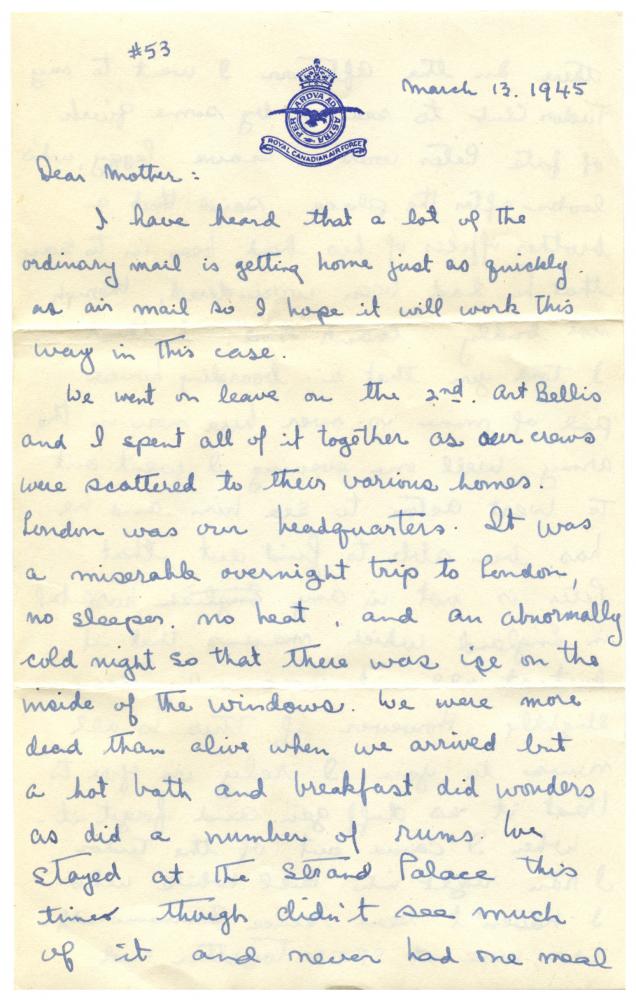 #53
PER ARDVA AD ASTRA
ROYAL CANADIAN AIR FORCE
March 13. 1945
Dear Mother:
I have heard that a lot of the
ordinary mail is getting home just as quickly
as air mail so I hope it will work this
way in this case.
We went on leave on the 2nd. Art Bellis
and I spent all of it together as our crews
were scattered to their various homes.
London was our headquarters. It was
a miserable overnight trip to London,
no sleeper, no heat, and an abnormally
cold night so that there was ice on the
inside of the windows. We were more
dead than alive when we arrived but
a hot bath and breakfast did wonders
as did a number of rums. We
stayed at the Strand Palace this
time though didn't see much
of it and never had one meal